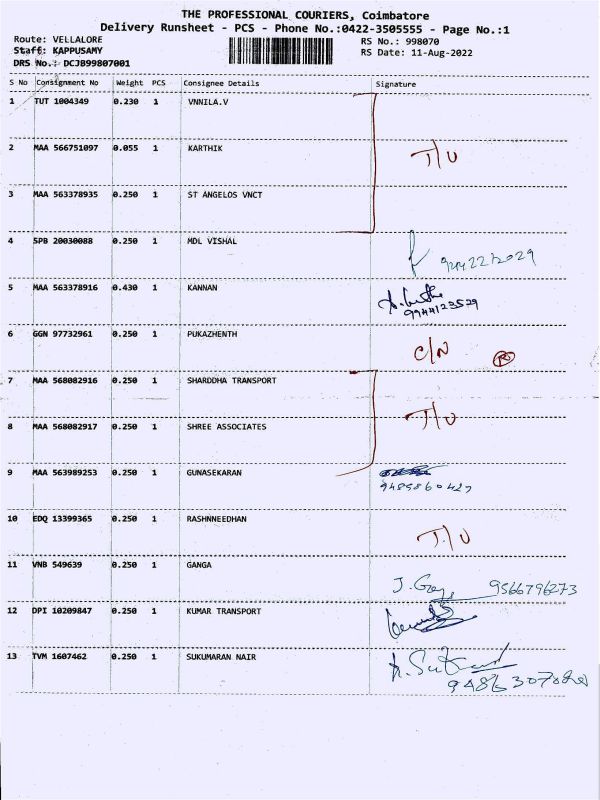 THE PROFESSIONAL COURIERS, Coimbatore
Delivery Runsheet - PCS - Phone No.:0422-3505555 - Page No.:1
Route: VELLALORE
RS No.: 998070
Staff: KAPPUSAMY
RS Date: 11-Aug-2022
DRS No.: DCJB99807001
S No Consignment No Weight PCS Consignee Details Signature
1 TUT 1004349 0.230 1 VNNILA.V
2 MAA 566751097 0.055 1 KARTHIK T/U
3 MAA 563378935 0.250 1 ST ANGELOS VNCT
4 SPB 20030088 0.250 1 MDL VISHAL
5 MAA 563378916 0.430 1 KANNAN
9944123529
6 GGN 97732961 0.250 1 PUKAZHENTH C/N
7 MAA 568082916 0.250 1 SHARDDHA TRANSPORT
T/U
8 MAA 568082917 0.250 1 SHREE ASSOCIATES
9 MAA 563989253 0.250 1 GUNASEKARAN
9489860427
10 EDQ 13399365 0.250 1 RASHNNEEDHAN T/U
11 VNB 549639 0.250 1 GANGA
9566796273
12 DPI 10209847 0.250 1 KUMAR TRANSPORT
13 TVM 1607462 0.250 1 SUKUMARAN NAIR